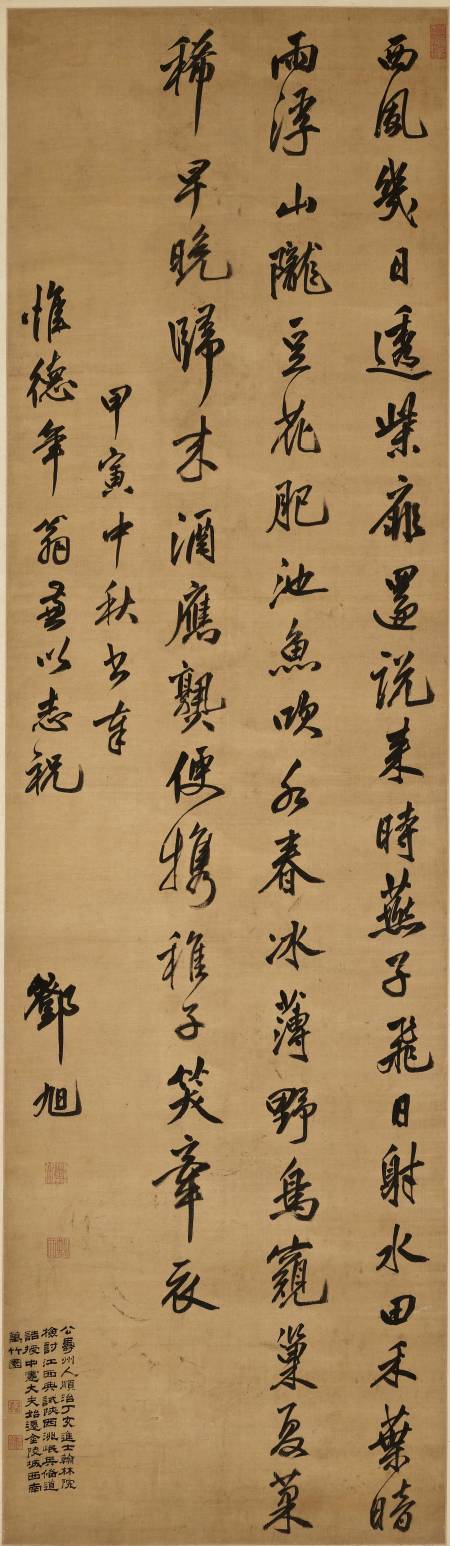 西風幾日透柴扉還說來時燕子飛日射水田禾葉暗
雨浮山隴豆花肥池魚吹水春冰薄野鳥窺巢夏菓
稀早晚歸來酒應熟便攜稚子笑牽衣
甲寅中秋書奉
惟德年翁兼以志祝
鄧旭
公壽州人順治丁亥進士翰林院
檢討江西典試陝西洮岷兵備道
誥授中憲大夫始遷金陵城西南
萬竹園